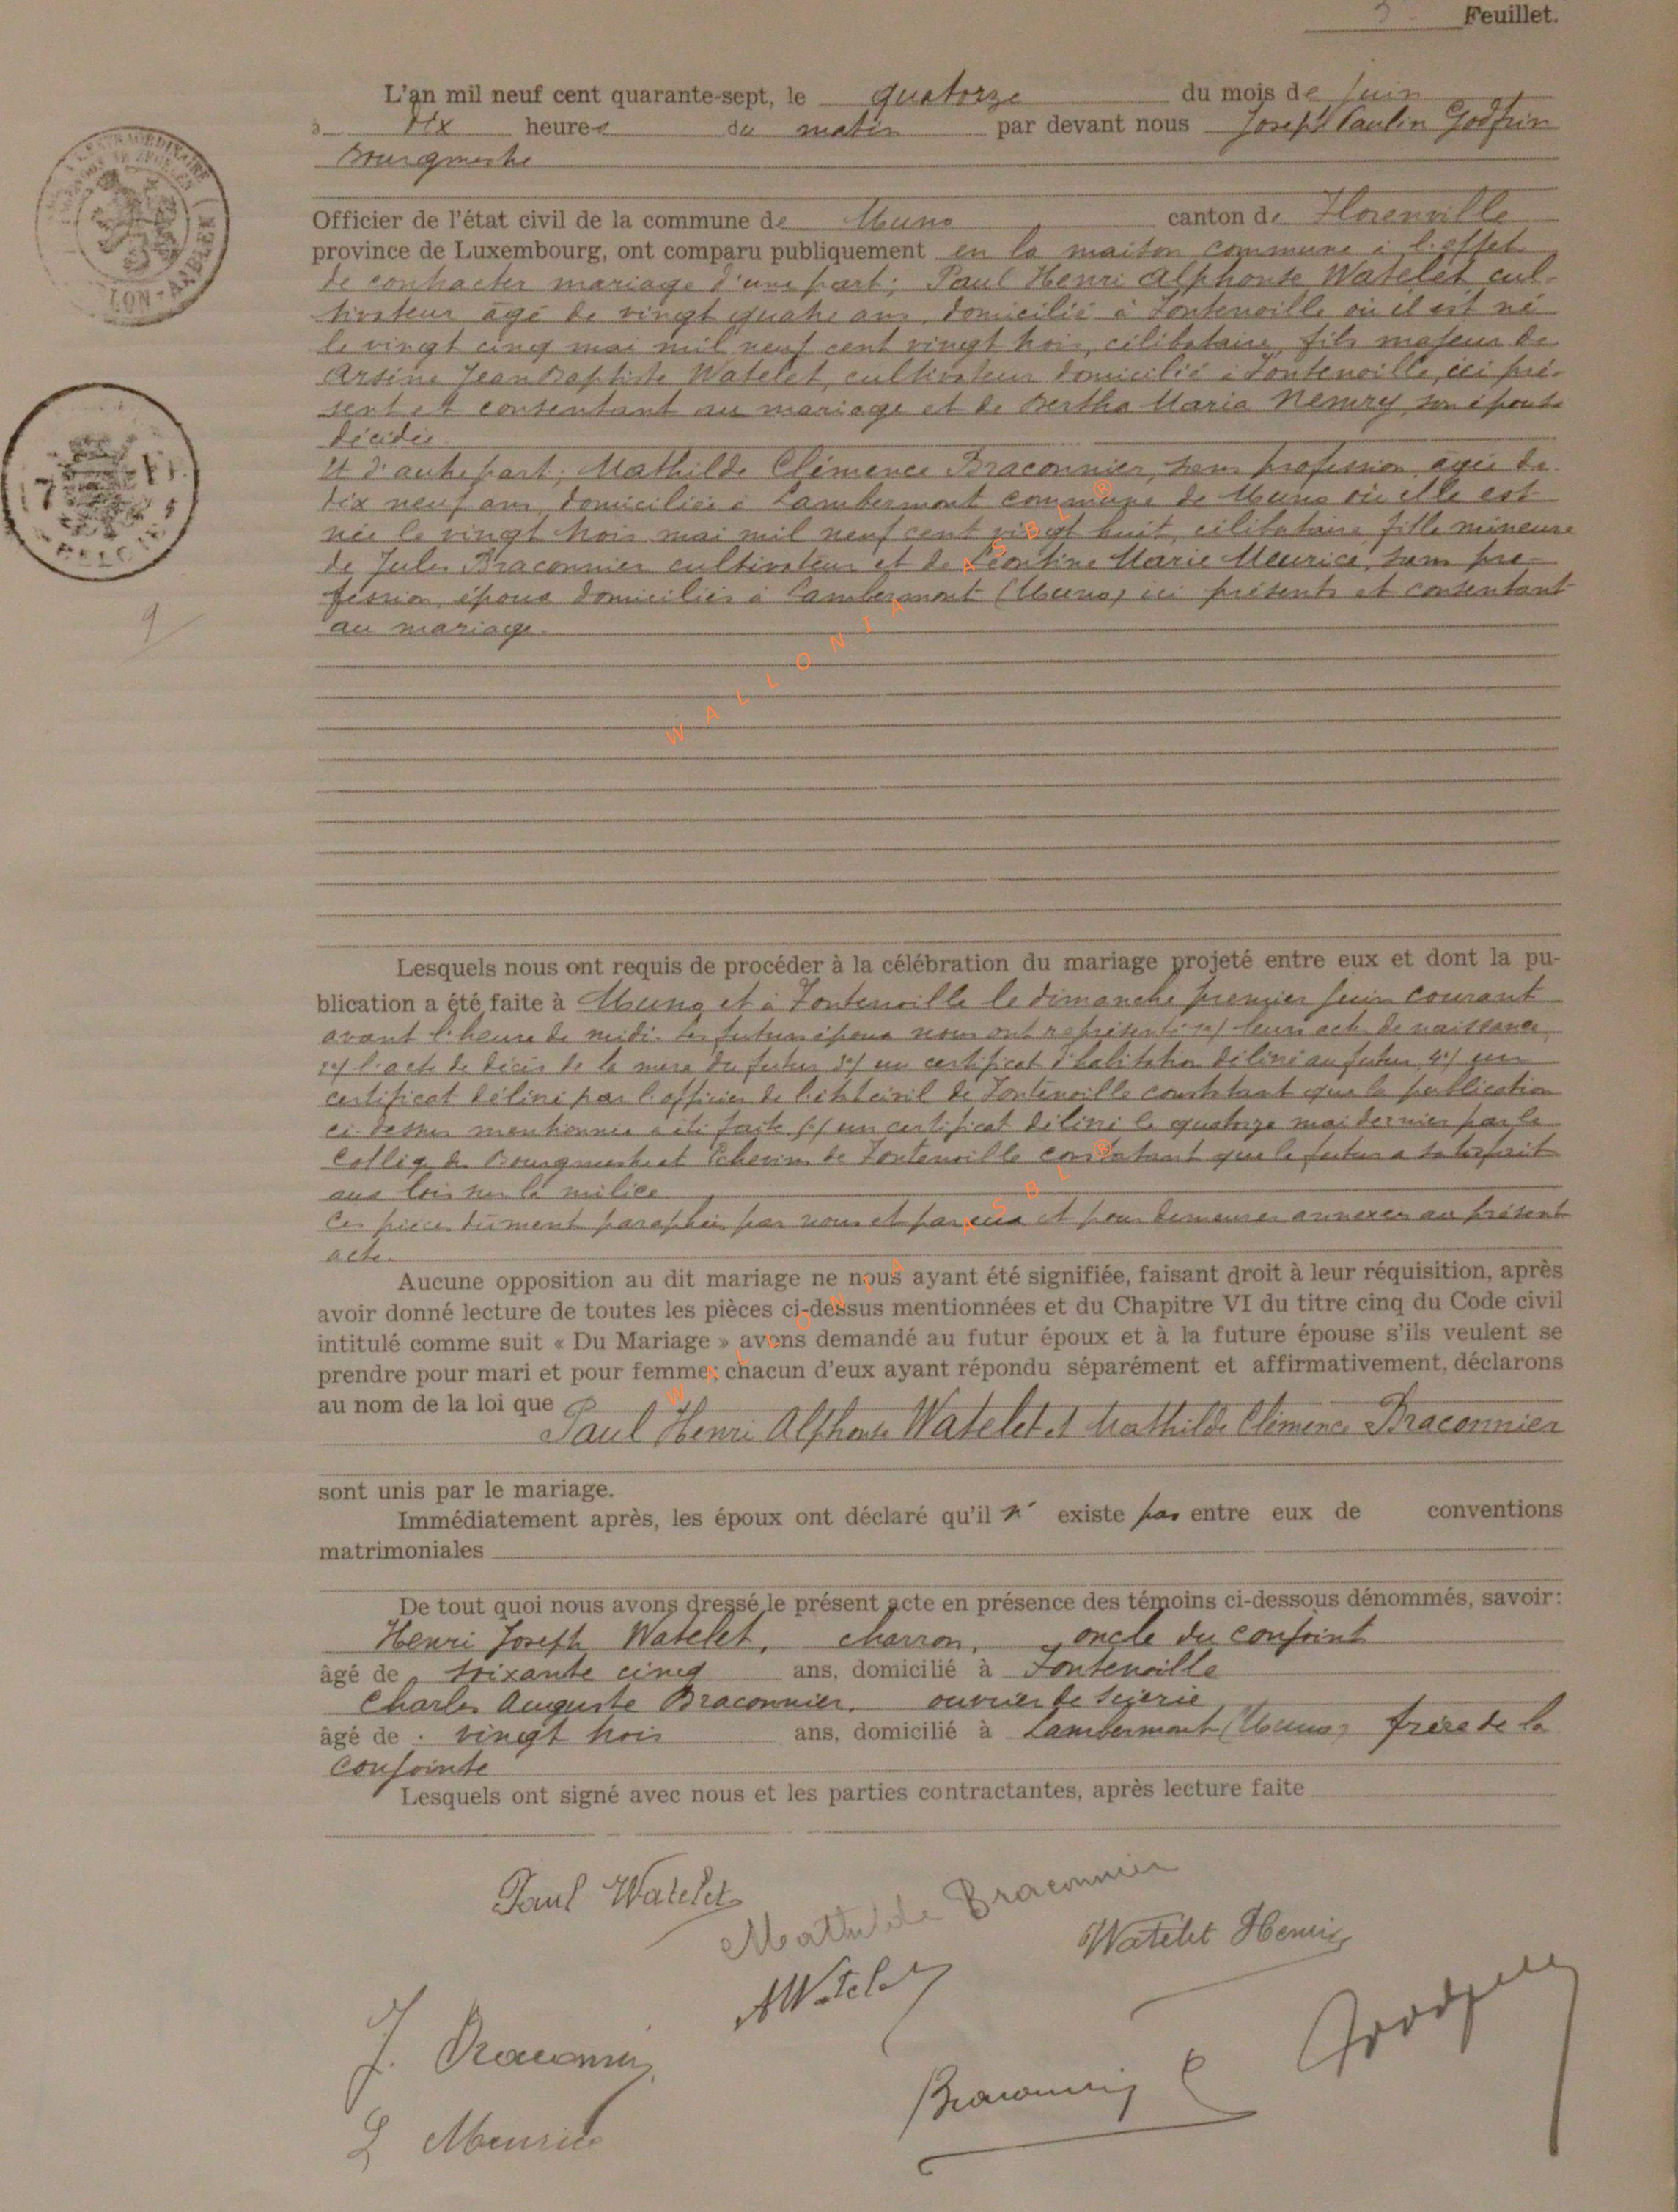 Feuillet.
L'an mil neuf cent quarante-sept, le quatorze du mois de juin
à dix heures du matin par devant nous Joseph Paulin Godfrin
Bourgmestre
Officier de l'état civil de la commune de Muno canton de Florenville
province de Luxembourg, ont comparu publiquement en la maison commune à l'effet
de contracter mariage d'une part; Paul Henri Alphonse Watelet cul-
tivateur âgé de vingt quatre ans, domicilié à Fontenoille où il est né
le vingt cinq mai mil neuf cent vingt trois, célibataire, fils majeur de
Arsène Jean Baptiste Watelet, cultivateur domicilié à Fontenoille, ici pré-
sent et consentant au mariage et de Bertha Maria Nemry son épouse
décédée
Et d'autre part; Mathilde Clémence Braconnier, sans profession, âgée de
dix neuf ans, domiciliée à Lambermont commune de Muno où elle est
née le vingt trois mai mil neuf cent vingt huit, célibataire, fille mineure
de Jules Braconnier cultivateur et de Léontine Marie Meurice, sans pro-
fession, époux domiciliés à Lambermont (Muno) ici présents et consentant
au mariage.
WALLONIA ASBL ®
Lesquels nous ont requis de procéder à la célébration du mariage projeté entre eux et dont la pu-
blication a été faite à Muno et à Fontenoille le dimanche premier juin courant
avant l'heure de midi. Les futurs époux nous ont représenté 1°/ leurs acte de naissance,
2°/ l'acte de décès de la mère du futur 3°/ un certificat d'habitation délivré au futur 4°/ un
certificat délivré par l'officier de l'état civil de Fontenoille constatant que la publication
ci-dessus mentionnée a été faite 5°/ un certificat délivré le quatorze mai dernier par le
Collège de Bourgmestre et Echevins de Fontenoille constatant que le futur a satisfait
aux lois sur la milice
Ces pièces dûment paraphées par nous et par eux et pour demeurer annexées au présent
acte.
Aucune opposition au dit mariage ne nous ayant été signifiée, faisant droit à leur réquisition, après
avoir donné lecture de toutes les pièces ci-dessus mentionnées et du Chapitre VI du titre cinq du Code civil
intitulé comme suit « Du Mariage » avons demandé au futur époux et à la future épouse s'ils veulent se
prendre pour mari et pour femme; chacun d'eux ayant répondu séparément et affirmativement, déclarons
au nom de la loi que
Paul Henri Alphonse Watelet et Mathilde Clémence Braconnier
WALLONIA ASBL ®
sont unis par le mariage.
Immédiatement après, les époux ont déclaré qu'il n' existe pas entre eux de conventions
matrimoniales
De tout quoi nous avons dressé le présent acte en présence des témoins ci-dessous dénommés, savoir:
Henri Joseph Watelet, charron, oncle du conjoint
âgé de soixante cinq ans, domicilié à Fontenoille
Charles Auguste Braconnier, ouvrier de scierie
âgé de vingt trois ans, domicilié à Lambermont (Muno) frère de la
conjointe
Lesquels ont signé avec nous et les parties contractantes, après lecture faite
Paul Watelet
Mathilde Braconnier
Watelet Henri
A Watelet
J. Braconnier
Braconnier C
Godfrin
L Meurice
9